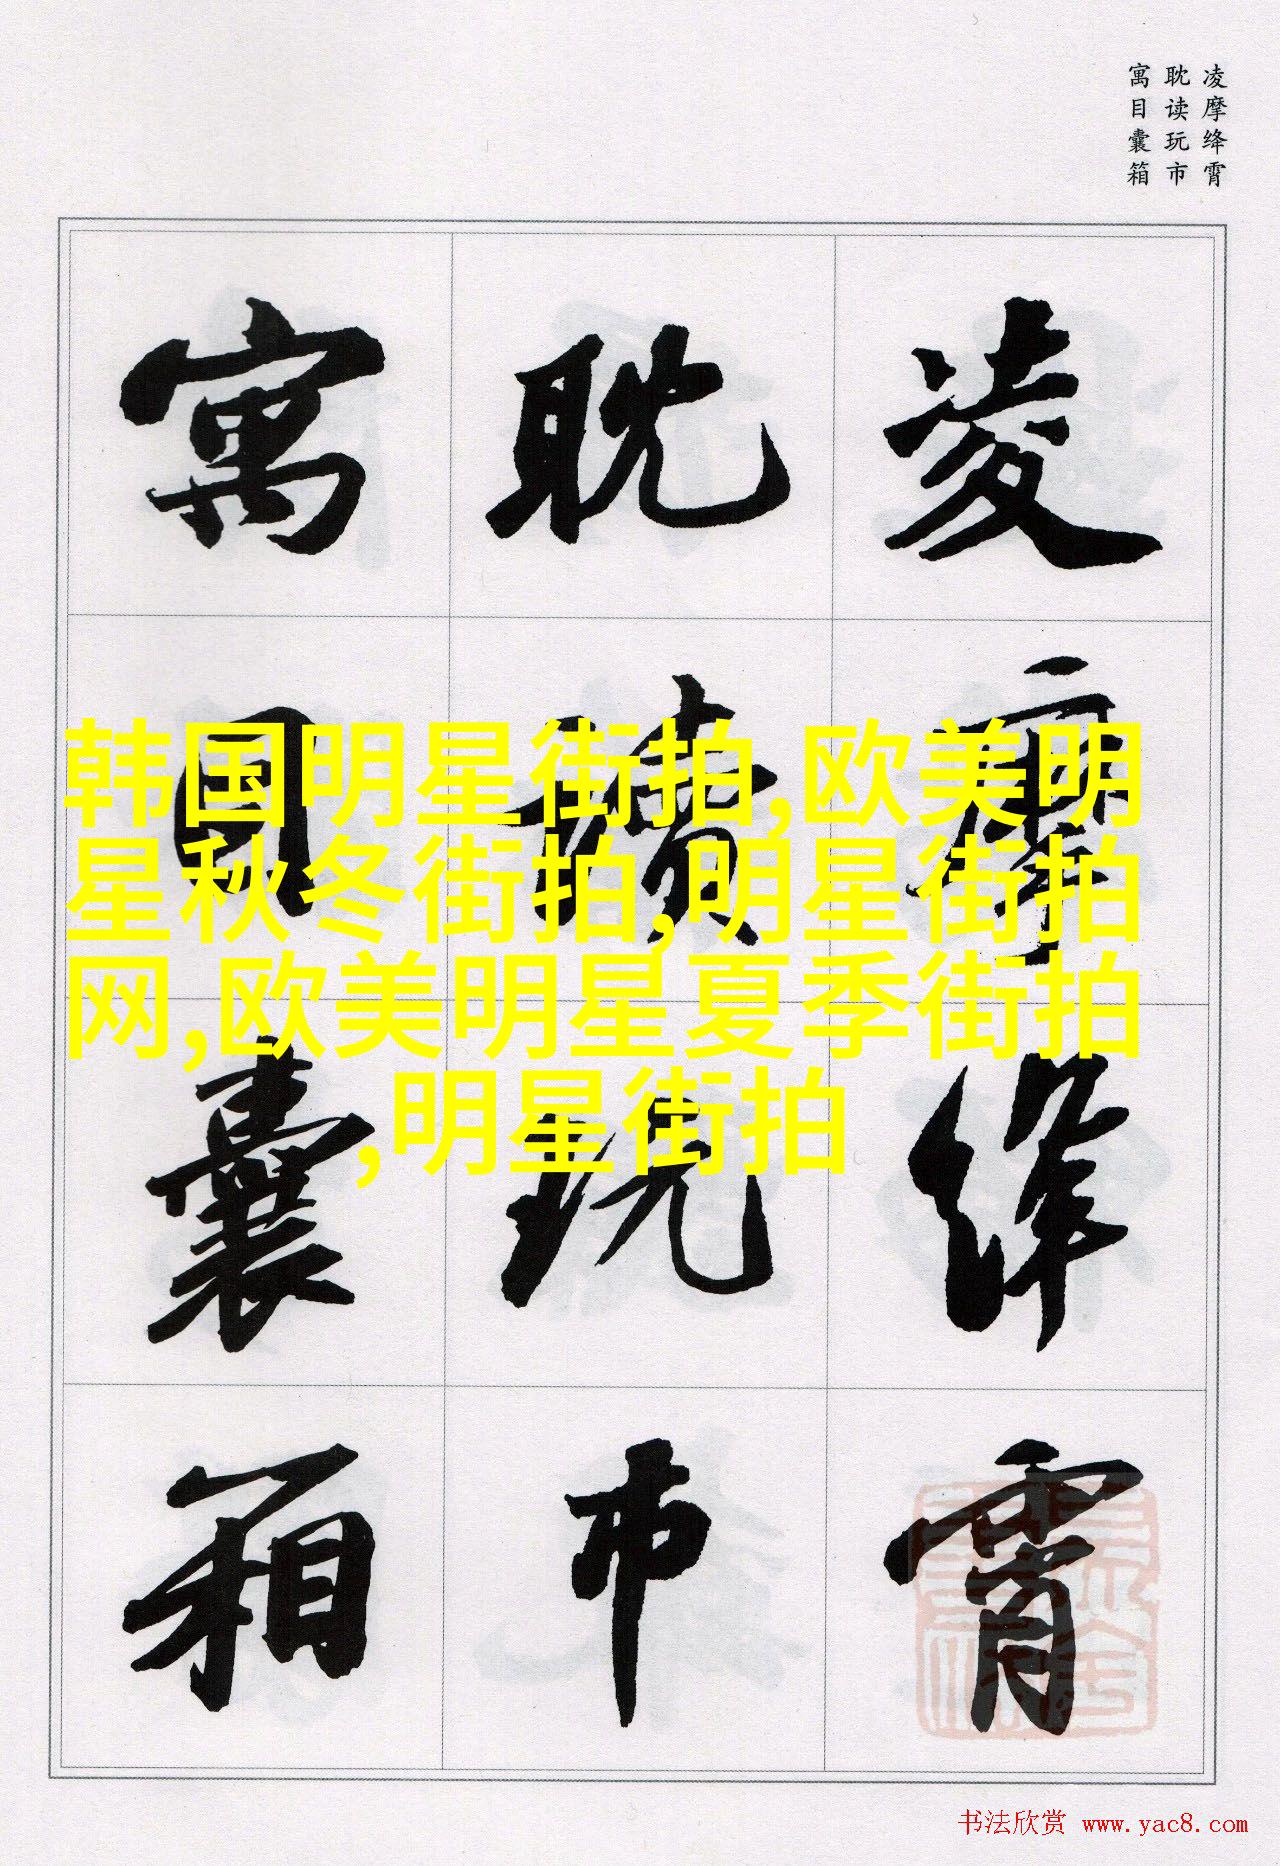 凌摩绛霄
耽读玩市
寓目囊箱
凌摩絳霄
耽讀玩市
寓目囊箱
韩国明星街拍,欧美明
星秋冬街拍,明星街拍
网,欧美明星夏季街拍
,明星街拍
书法欣赏 www.yac8.com